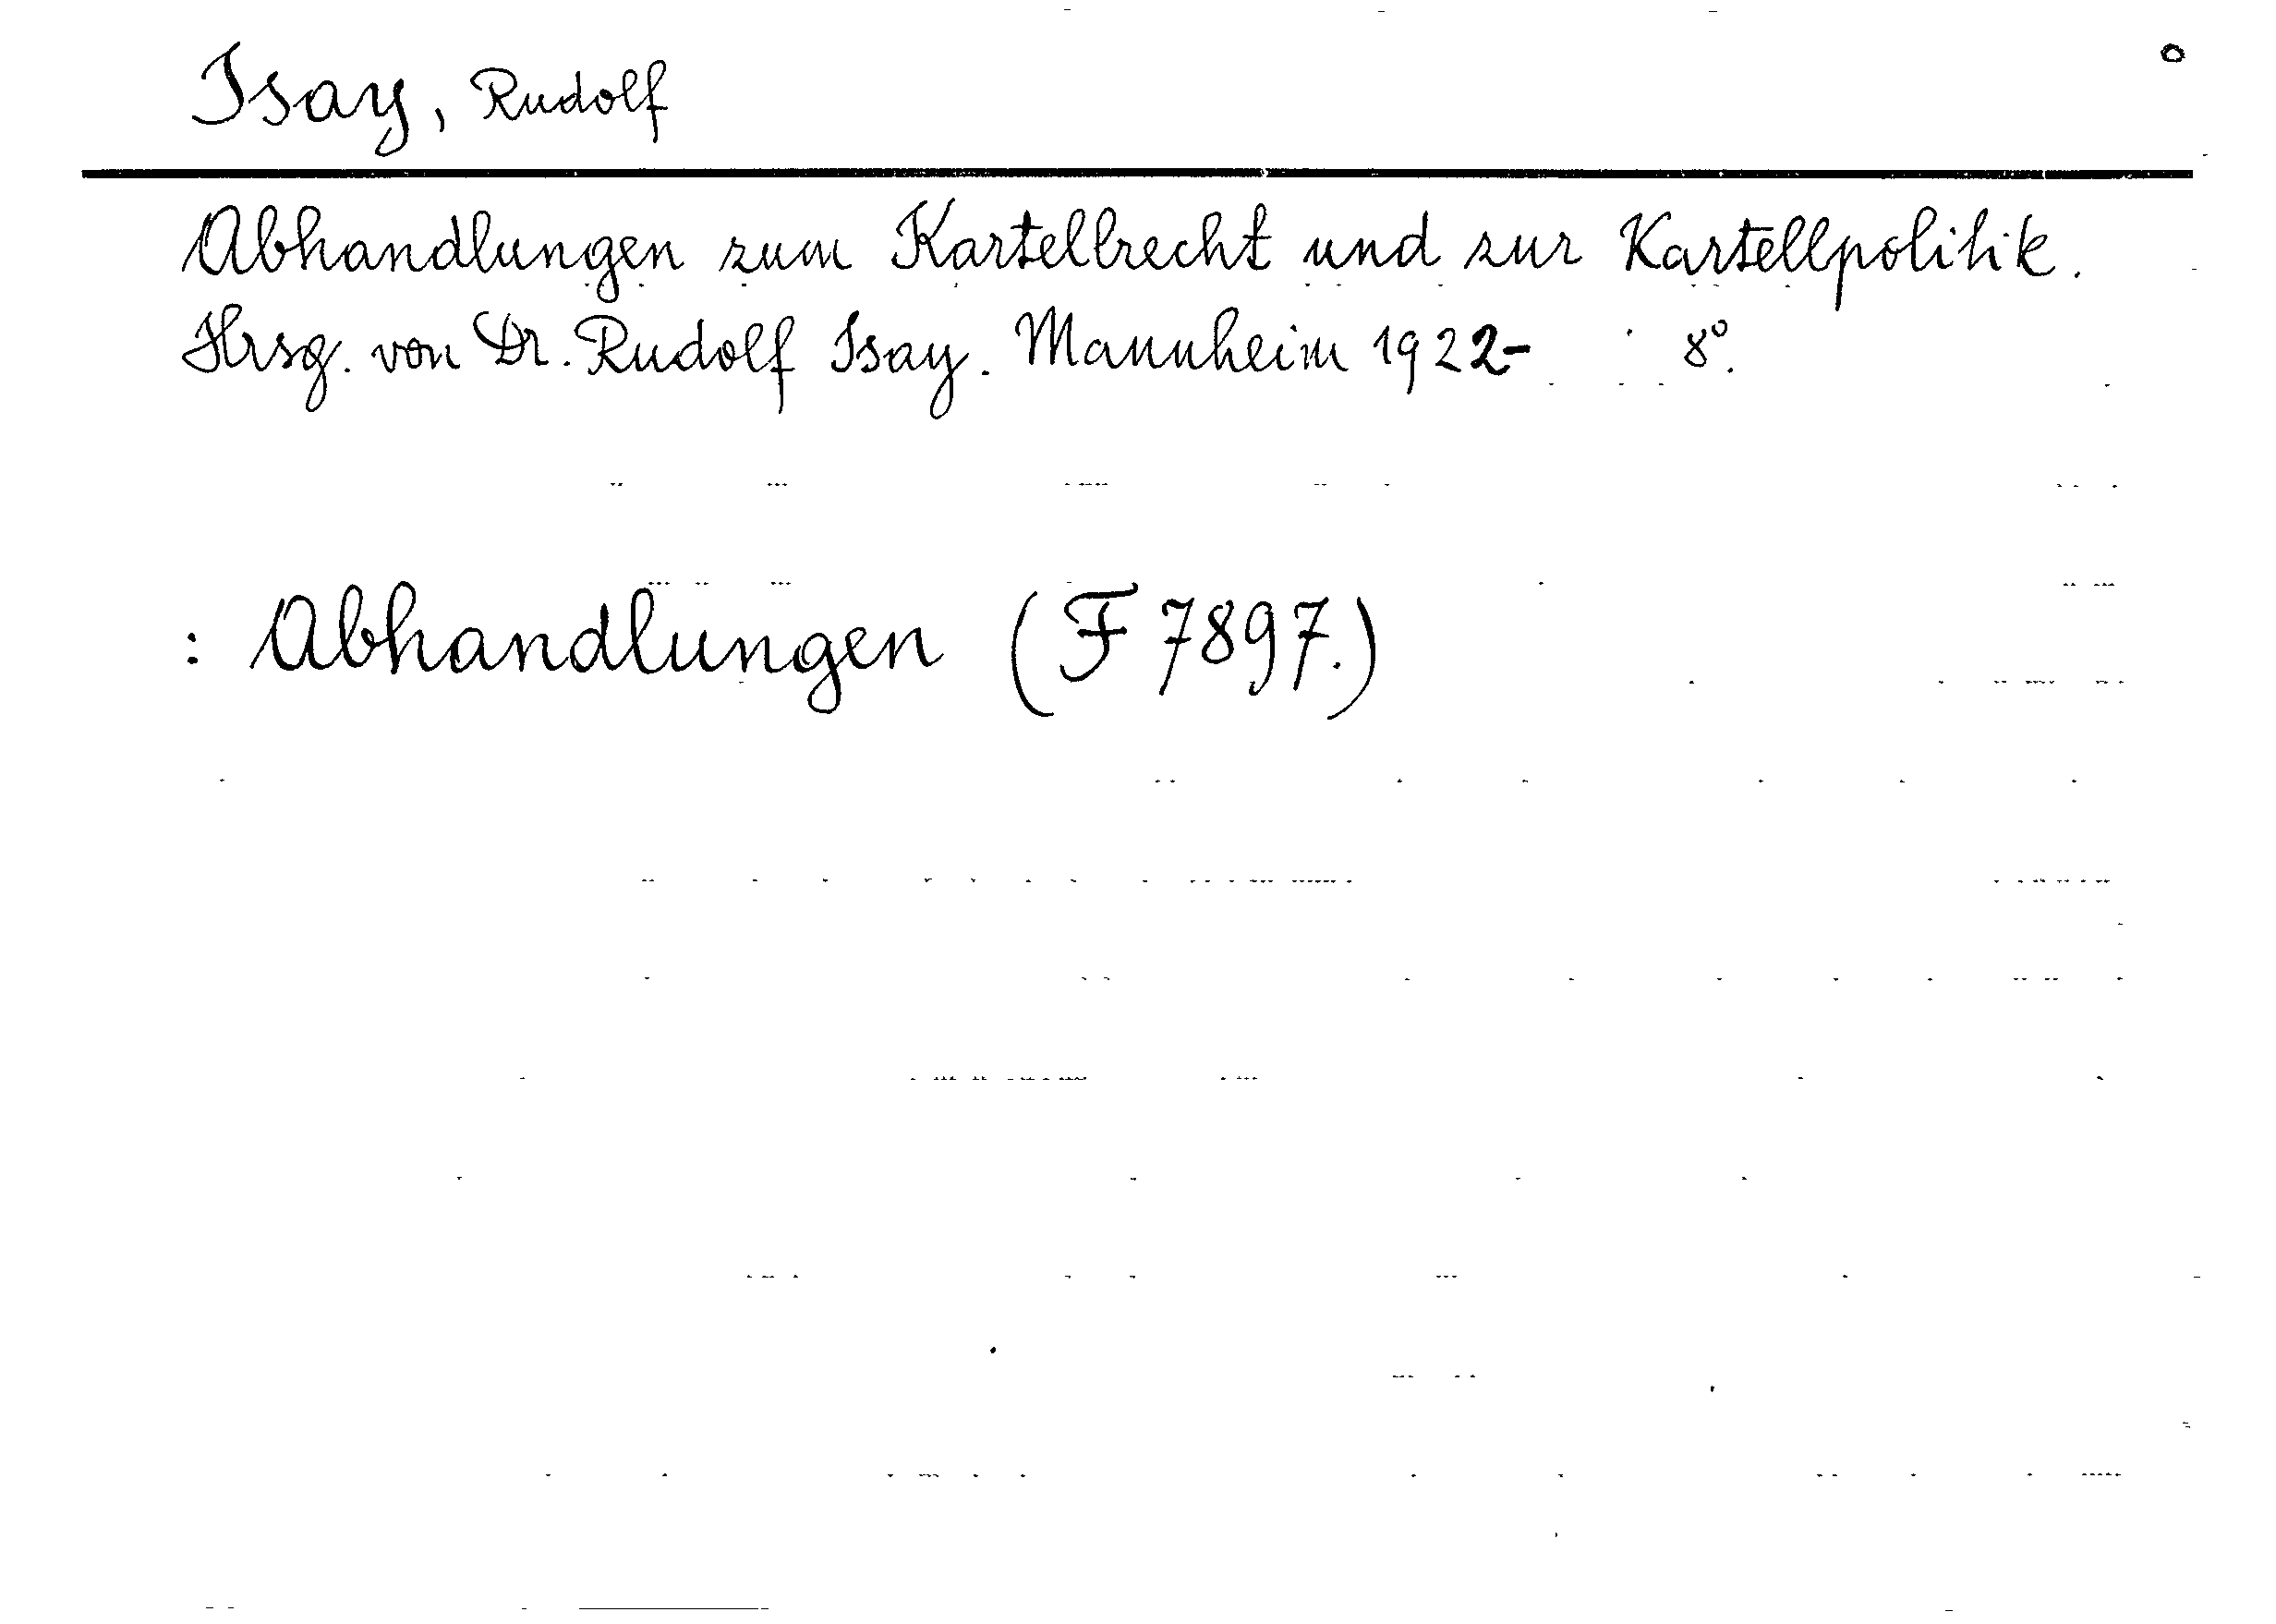 Isay, Rudolf
Abhandlungen zum Kartellrecht und zur Kartellpolitik.
Hrsg. von Dr. Rudolf Isay. Mannheim 1922- 8°.
: Abhandlungen (F 7897.)